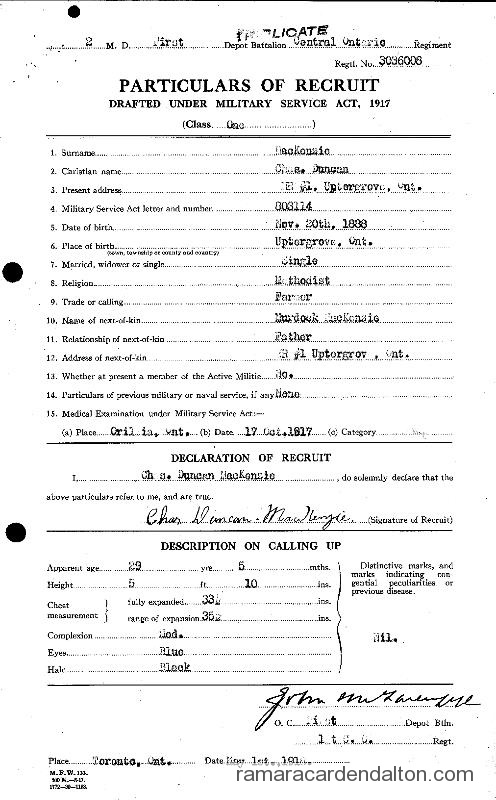 2 M. D. First Depot Battalion Central Ontario Regiment
Regtl. No. 3036006
PARTICULARS OF RECRUIT
DRAFTED UNDER MILITARY SERVICE ACT, 1917
(Class One )
1. Surname MacKenzie
2. Christian name Chas. Duncan
3. Present address RR #1. Uptergrove, Ont.
4. Military Service Act letter and number 803114
5. Date of birth Nov. 20th, 1888
6. Place of birth Uptergrove, Ont.
(town, township or county and country)
7. Married, widower or single Single
8. Religion Methodist
9. Trade or calling Farmer
10. Name of next-of-kin Murdock MacKenzie
11. Relationship of next-of-kin Father
12. Address of next-of-kin RR #1 Uptergrov , Ont.
13. Whether at present a member of the Active Militia No.
14. Particulars of previous military or naval service, if any None
15. Medical Examination under Military Service Act:—
(a) Place Orillia, Ont. (b) Date 17 Oct. 1917 (c) Category
DECLARATION OF RECRUIT
I, Ch s. Duncan MacKenzie , do solemnly declare that the
above particulars refer to me, and are true.
Chas Duncan MacKenzie (Signature of Recruit)
DESCRIPTION ON CALLING UP
Apparent age 29 yrs. 5 mths.
Height 5 ft. 10 ins.
Chest measurement } fully expanded ins.
range of expansion ins.
Complexion Med.
Eyes Blue
Hair Black
Distinctive marks, and
marks indicating con-
genital peculiarities or
previous disease.
Nil.
John
O. C. Depot Btln.
Regt.
Place Toronto, Ont. Date
M. F. W. 133.
ramaracardendalton.com